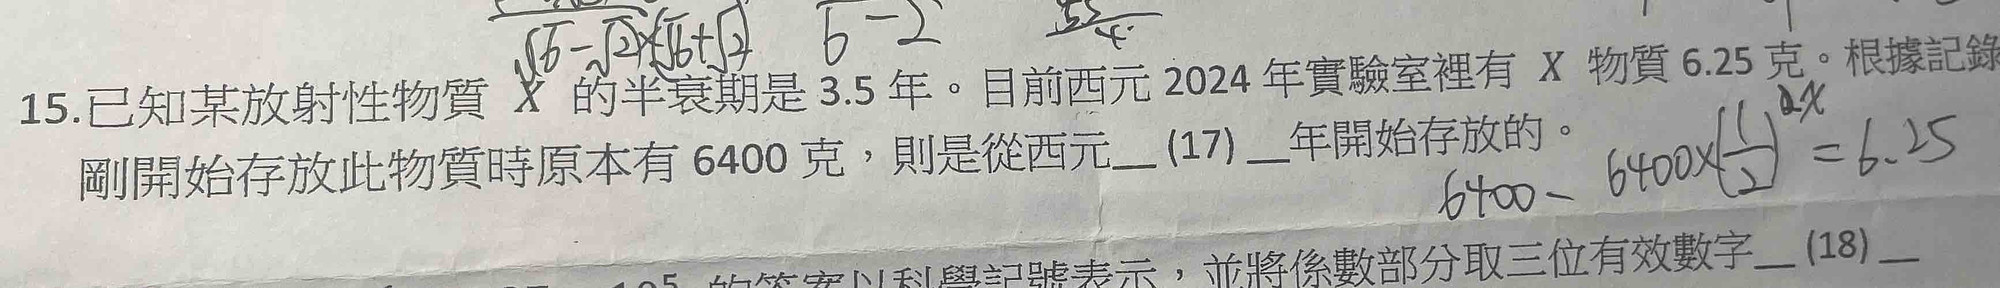 (√6-√2)(√6+√2) 6-2
15.已知某放射性物質 X 的半衰期是 3.5 年。目前西元 2024 年實驗室裡有 X 物質 6.25 克。根據記錄
剛開始存放此物質時原本有 6400 克，則是從西元__ (17) __年開始存放的。
6400- 6400×(1/2)^2x = 6.25
，並將係數部分取三位有效數字__ (18) __